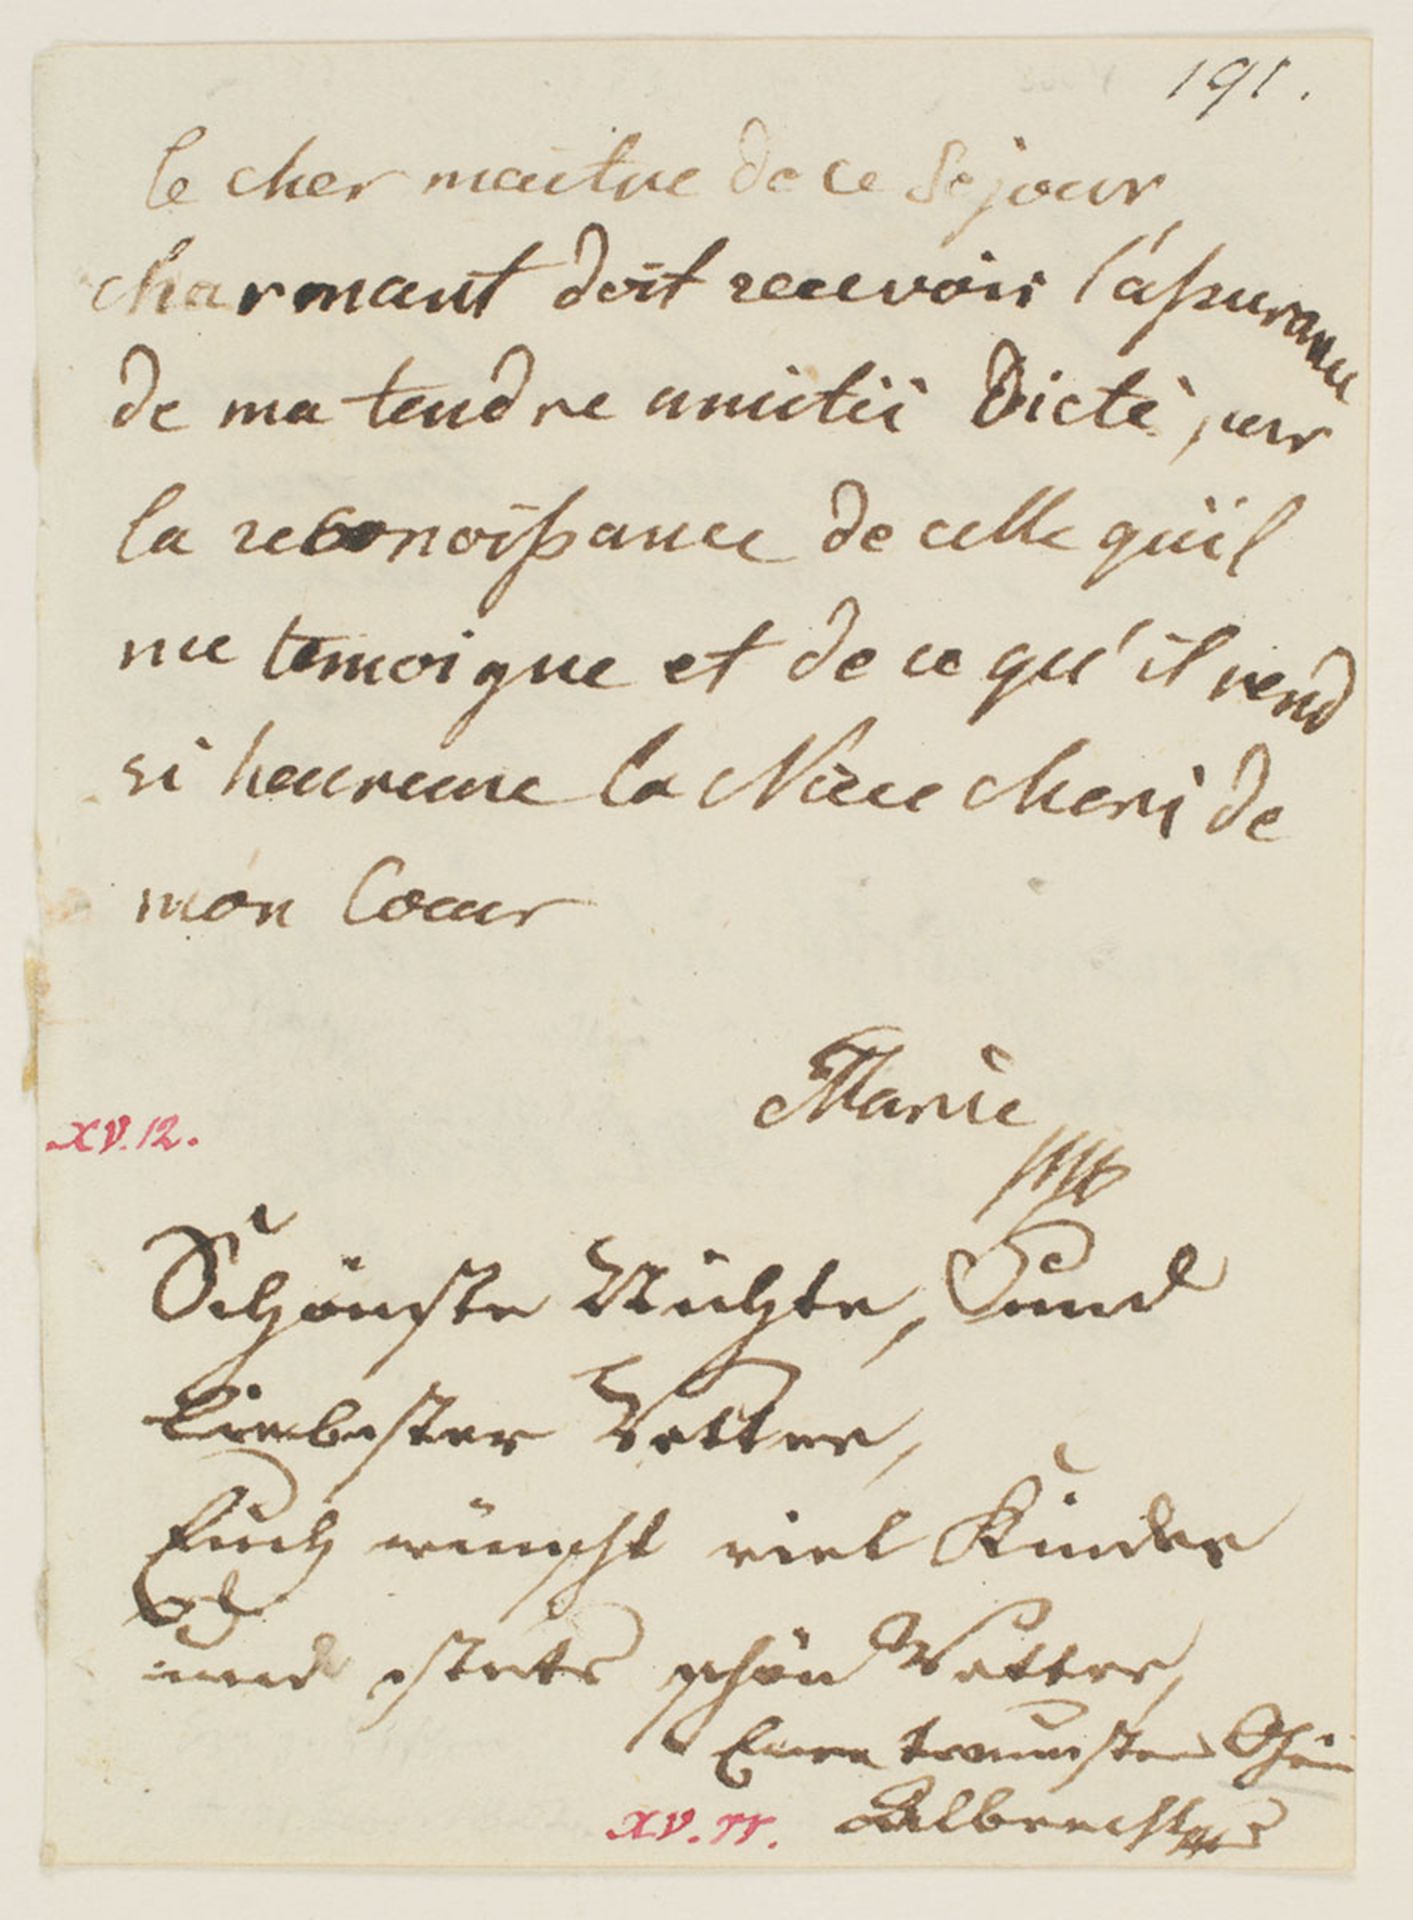 191.
le cher maitre de ce Sejour
charmant doit recevoir l'assurance
de ma tendre amitié Dicté par
la reconoissance de celle qu'il
me temoigne et de ce qu'il rend
si heureuse la Niece cheri de
mon Coeur
Marie
XV. 12.
Schönste Nichte, und
Liebster Vetter,
Euch wünscht viel Kinder
und stets schön Wetter,
Euer treuster Ohm
Albrecht
XV. 11.